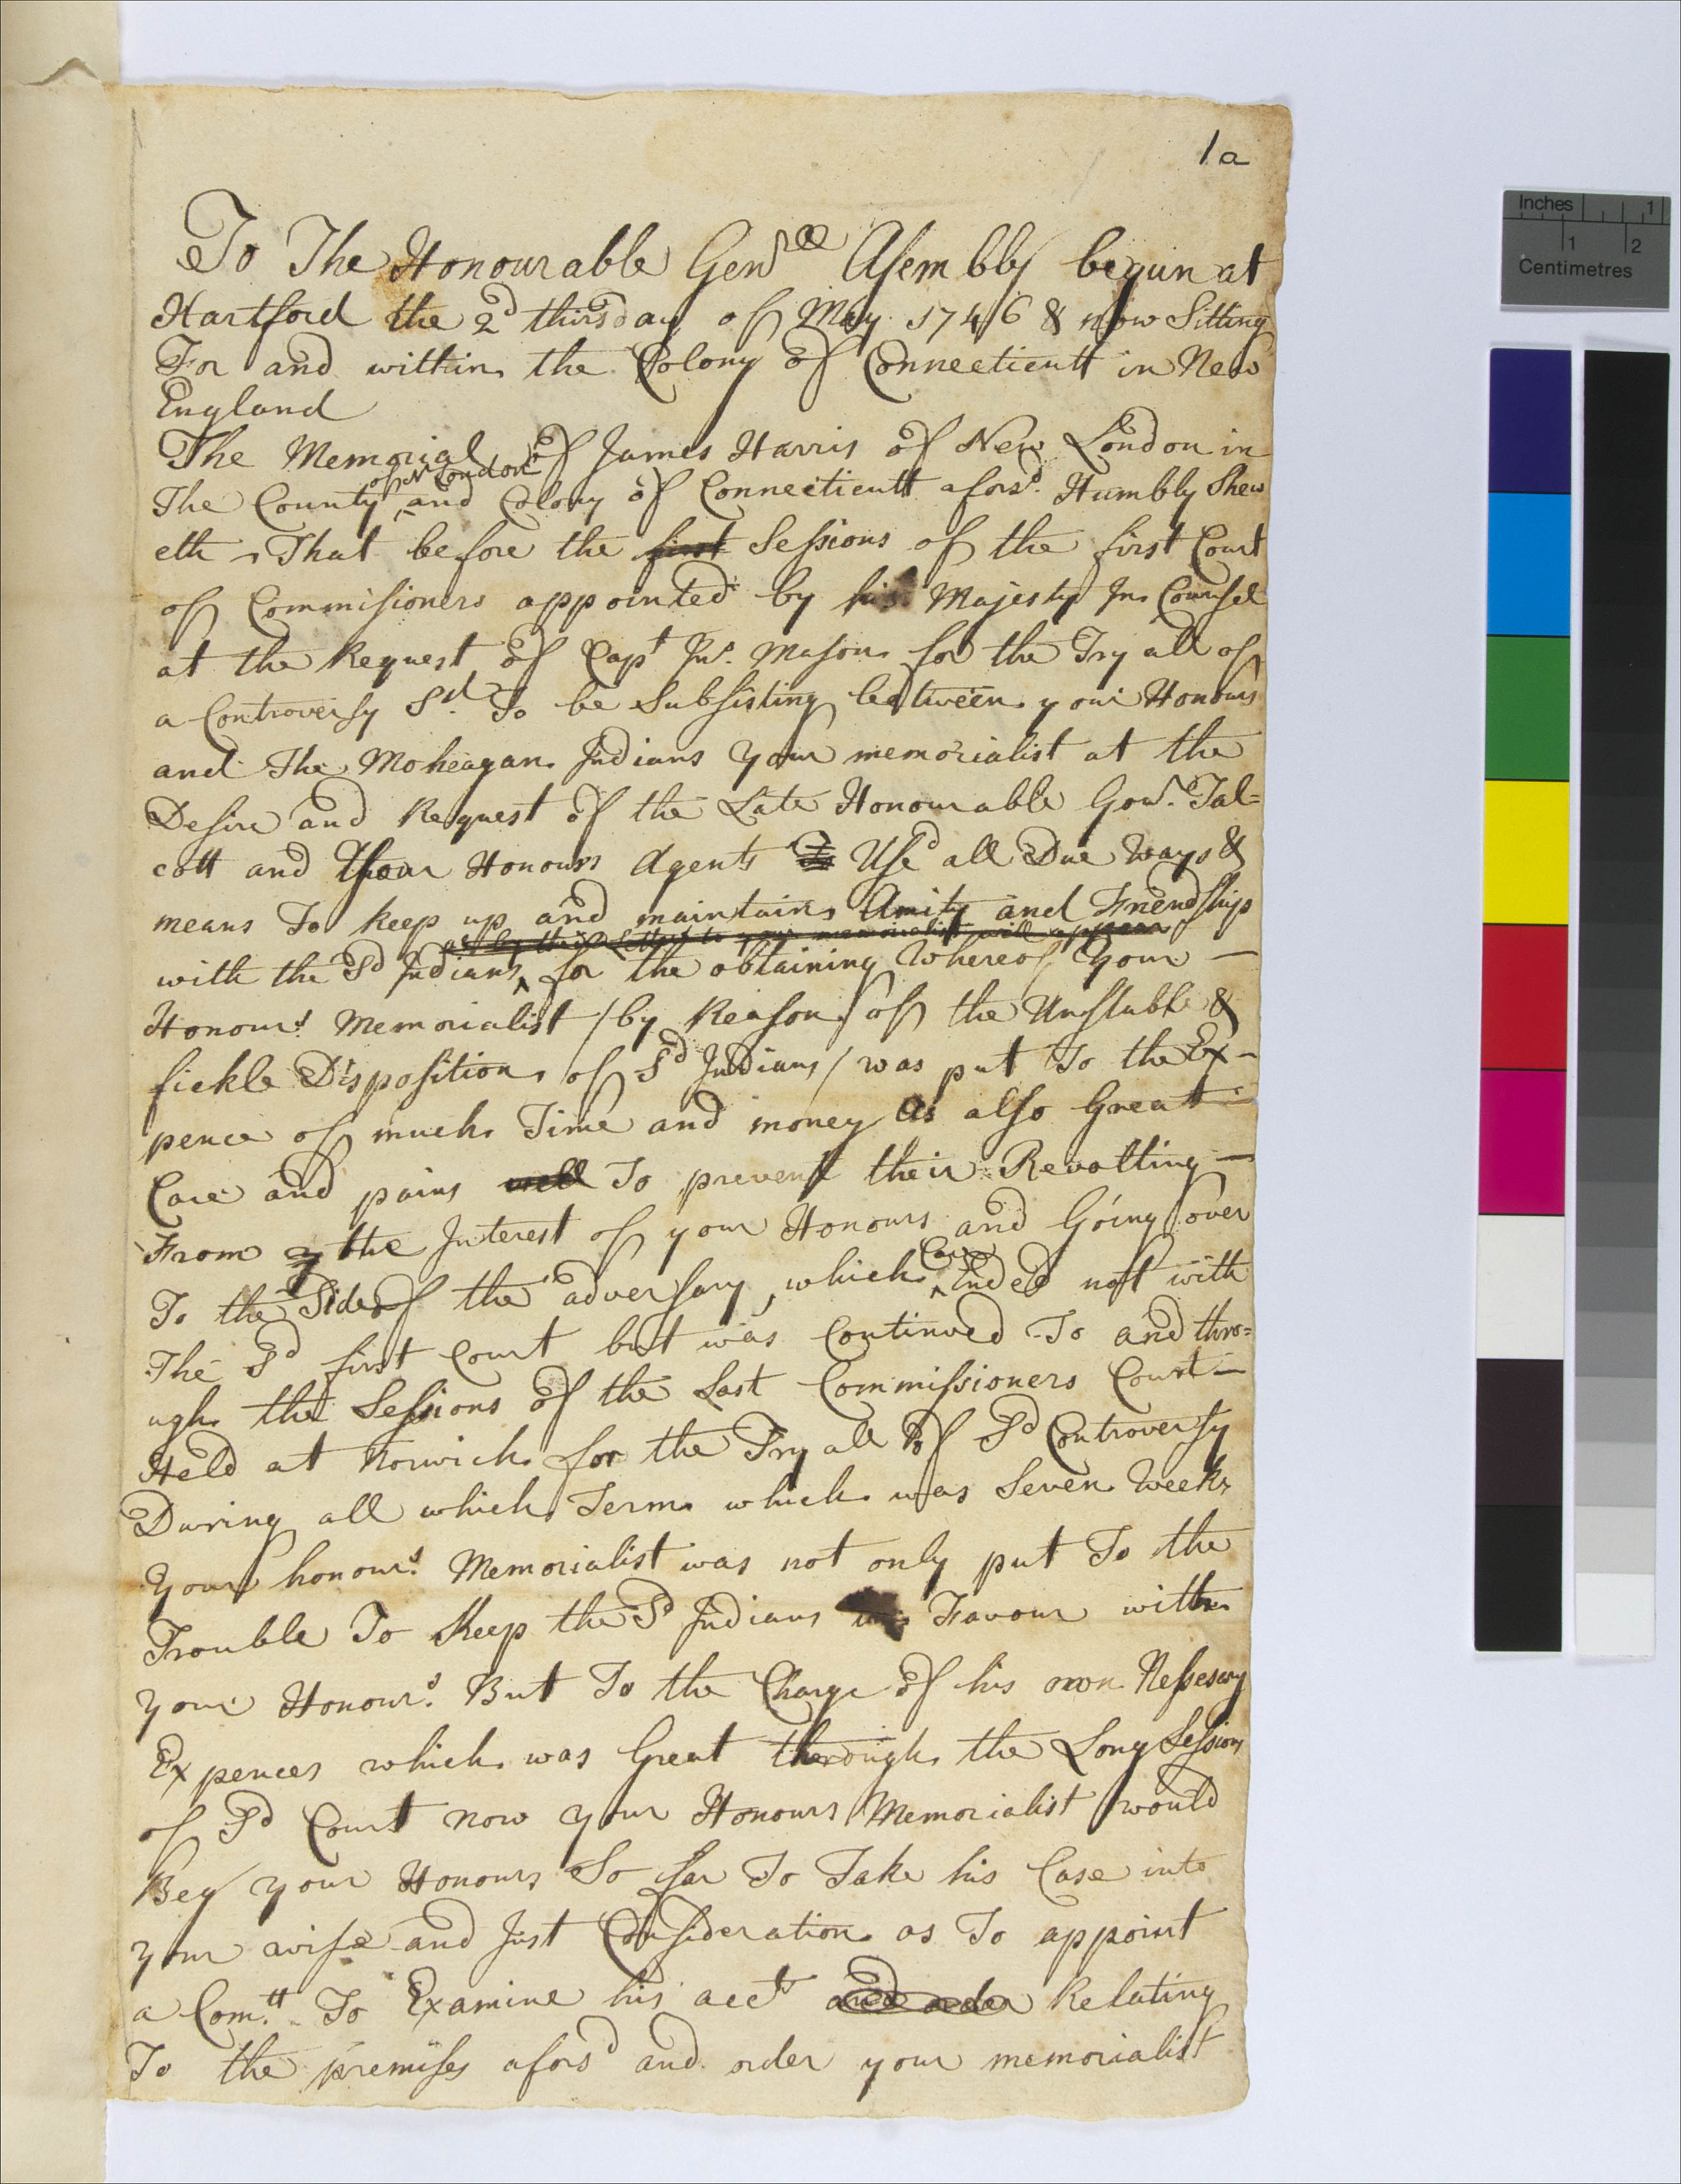 1a
To The Honourable Genrll Asembly begun at
Hartford the 2d thirsday of May 1746 & now Sitting
For and within the Colony of Connecticutt in New
England
The Memorial of James Harris of New London in
of N London
The County ^ and Colony of Connecticutt aforsd. Humbly Shew
eth That before the first Sessions of the first Court
of Commisioners appointed by his Majesty In Counsel
at the Request of Capt Jns. Mason for the Tryall of
a Controversy Sd. To be Subsisting between your Honours
and The Moheagan Indians Your memorialist at the
Desire and Request of the Late Honourable Govr. Tal=
cott and Your Honours Agents To Used all Due Ways &
means To keep up and maintain Amity and Friendship
as by their Letters to your memorialist will appear
with the Sd Indians ^ for the obtaining Whereof Your –
Honours Memorialist / by Reason of the Unstable &
fickle Disposition of Sd Indians / was put To the Ex–
pence of much Time and money As also Great –
Care and pains well To prevent their Revolting –
From the Interest of your Honours and Going over
Care
To the Side of the adversary, which ^ Ended not with
The Sd first Court but was Continued To and thro=
ugh the Sessions of the Last Commissioners Court –
Held at Norwich for the Tryall of Sd Controversy
During all which Term which was Seven Weeks
Your honours Memorialist was not only put To the
Trouble To Keep the Sd Indians in Favour with
your Honours. But To the Charge of his own Nessesery
Expences which was Great thorough the Long Session
of Sd Court now your Honours Memorialist would
Beg your Honours So far To Take his Case into
your wise and Just Consideration as To appoint
a Comtt. To Examine his accts and order Relating
To the premises aforsd and order your memorialist
Inches 1
1 2
Centimetres